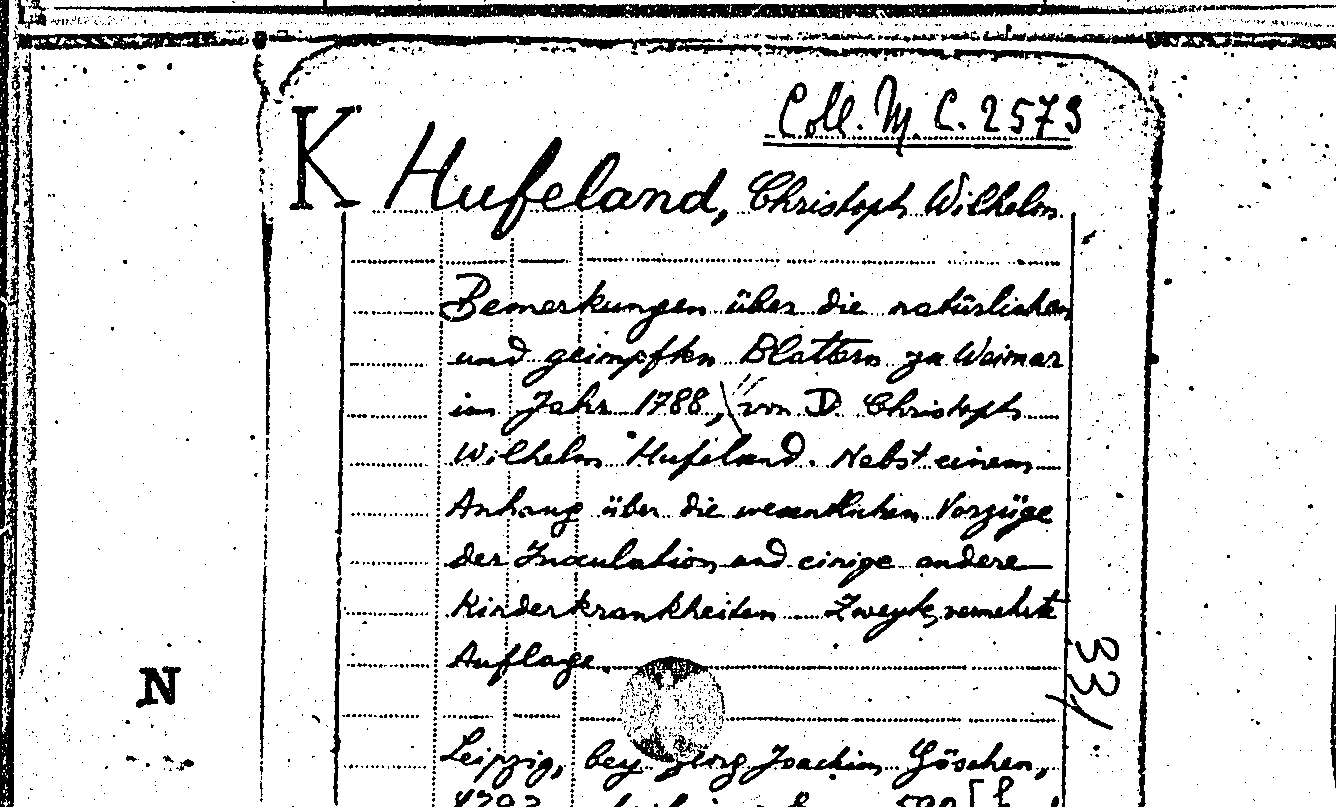 Coll. M. C. 2573
K Hufeland, Christoph Wilhelm
Bemerkungen über die natürlichen
und geimpften Blattern zu Weimar
im Jahr 1788, von D Christoph
Wilhelm Hufeland. Nebst einem
Anhang über die wesentlichen Vorzüge
der Inoculation und einige andere
Kinderkrankheiten. Zweyte, vermehrte
Auflage.
33
N
Leipzig, bey Georg Joachim Göschen,
1793